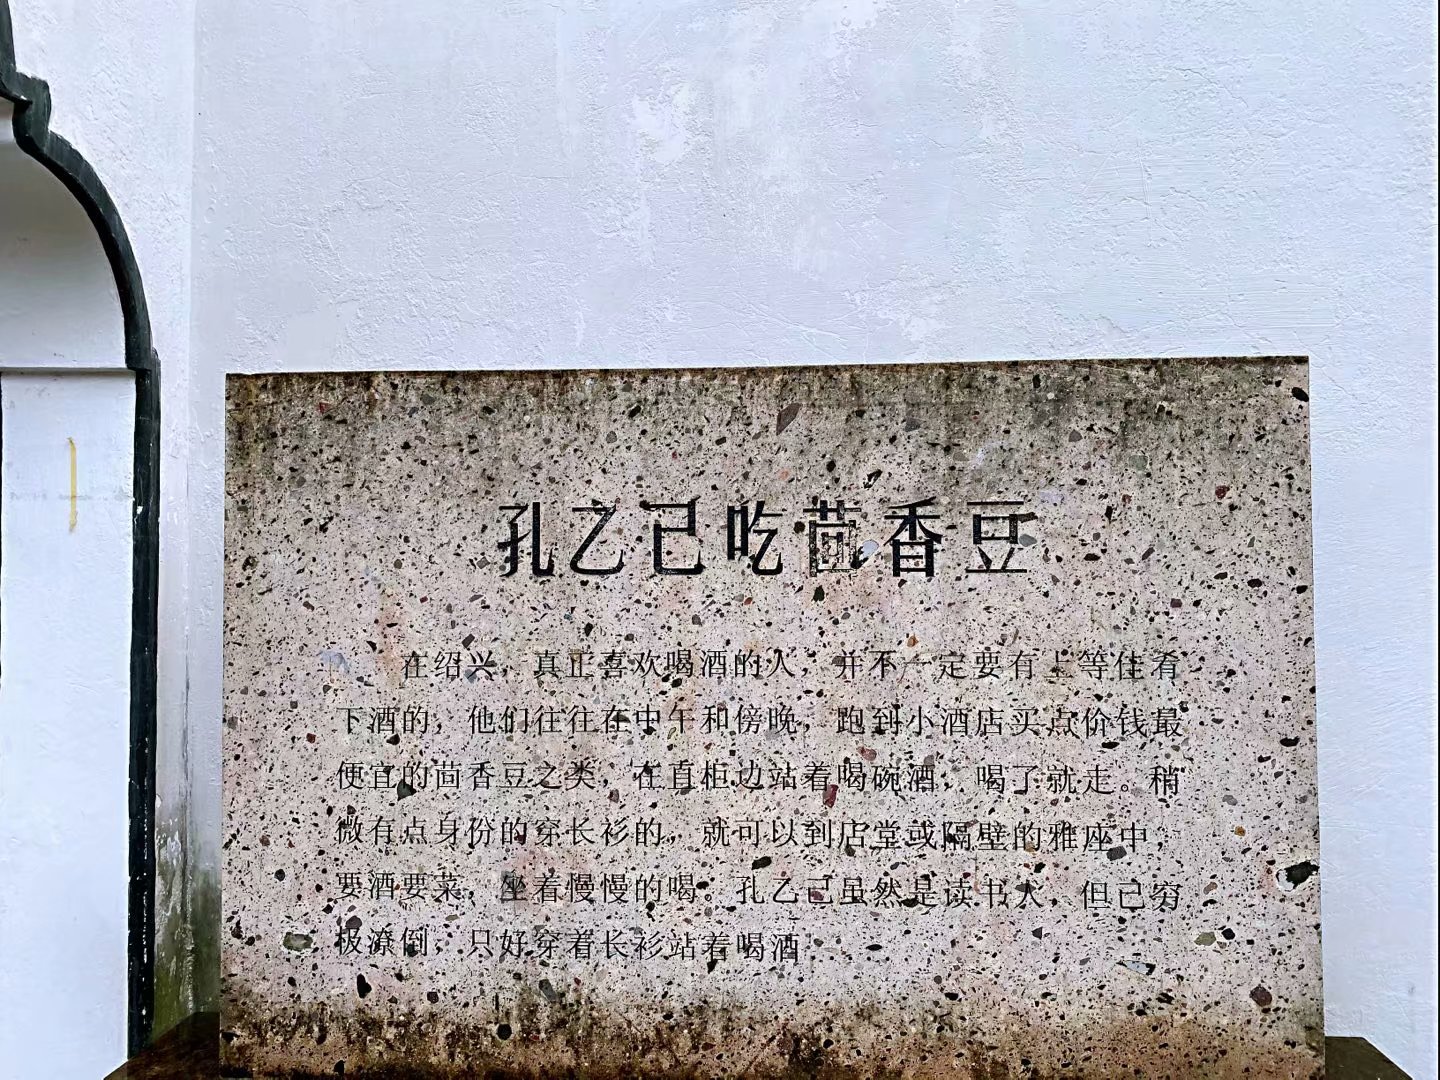 孔乙己吃茴香豆
在绍兴，真正喜欢喝酒的人，并不一定要有上等佳肴
下酒的，他们往往在中午和傍晚，跑到小酒店买点价钱最
便宜的茴香豆之类，在直柜边站着喝碗酒，喝了就走。稍
微有点身份的穿长衫的，就可以到店堂或隔壁的雅座中，
要酒要菜，坐着慢慢的喝。孔乙己虽然是读书人，但已穷
极潦倒，只好穿着长衫站着喝酒